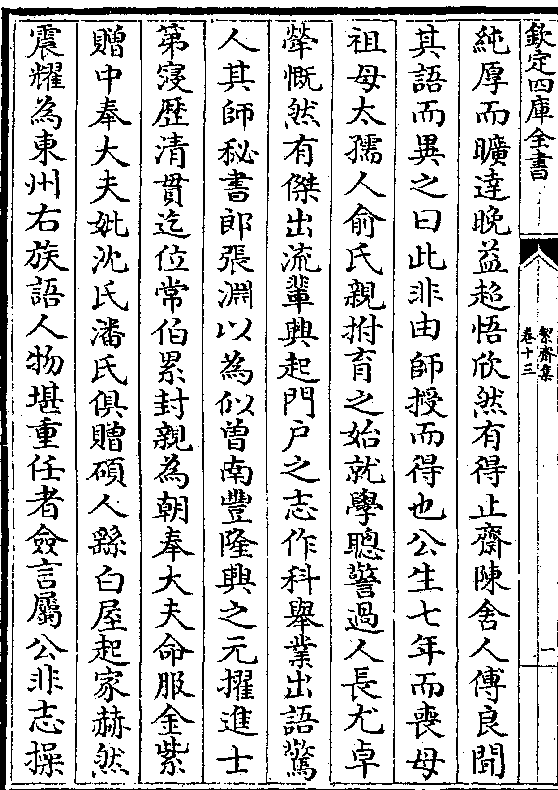 欽定四庫全書
絜齋集
卷十三
一
純厚而曠達晚益超悟欣然有得止齋陳舍人傅良聞
其語而異之曰此非由師授而得也公生七年而喪母
祖母太孺人俞氏親拊育之始就學聰警過人長尤卓
犖慨然有傑出流輩興起門户之志作科舉業出語驚
人其師秘書郎張淵以為似曽南豐隆興之元擢進士
第寖歴清貫迄位常伯累封親為朝奉大夫命服金紫
贈中奉大夫妣沈氏潘氏俱贈碩人繇白屋起家赫然
震耀為東州右族語人物堪重任者僉言屬公非志操